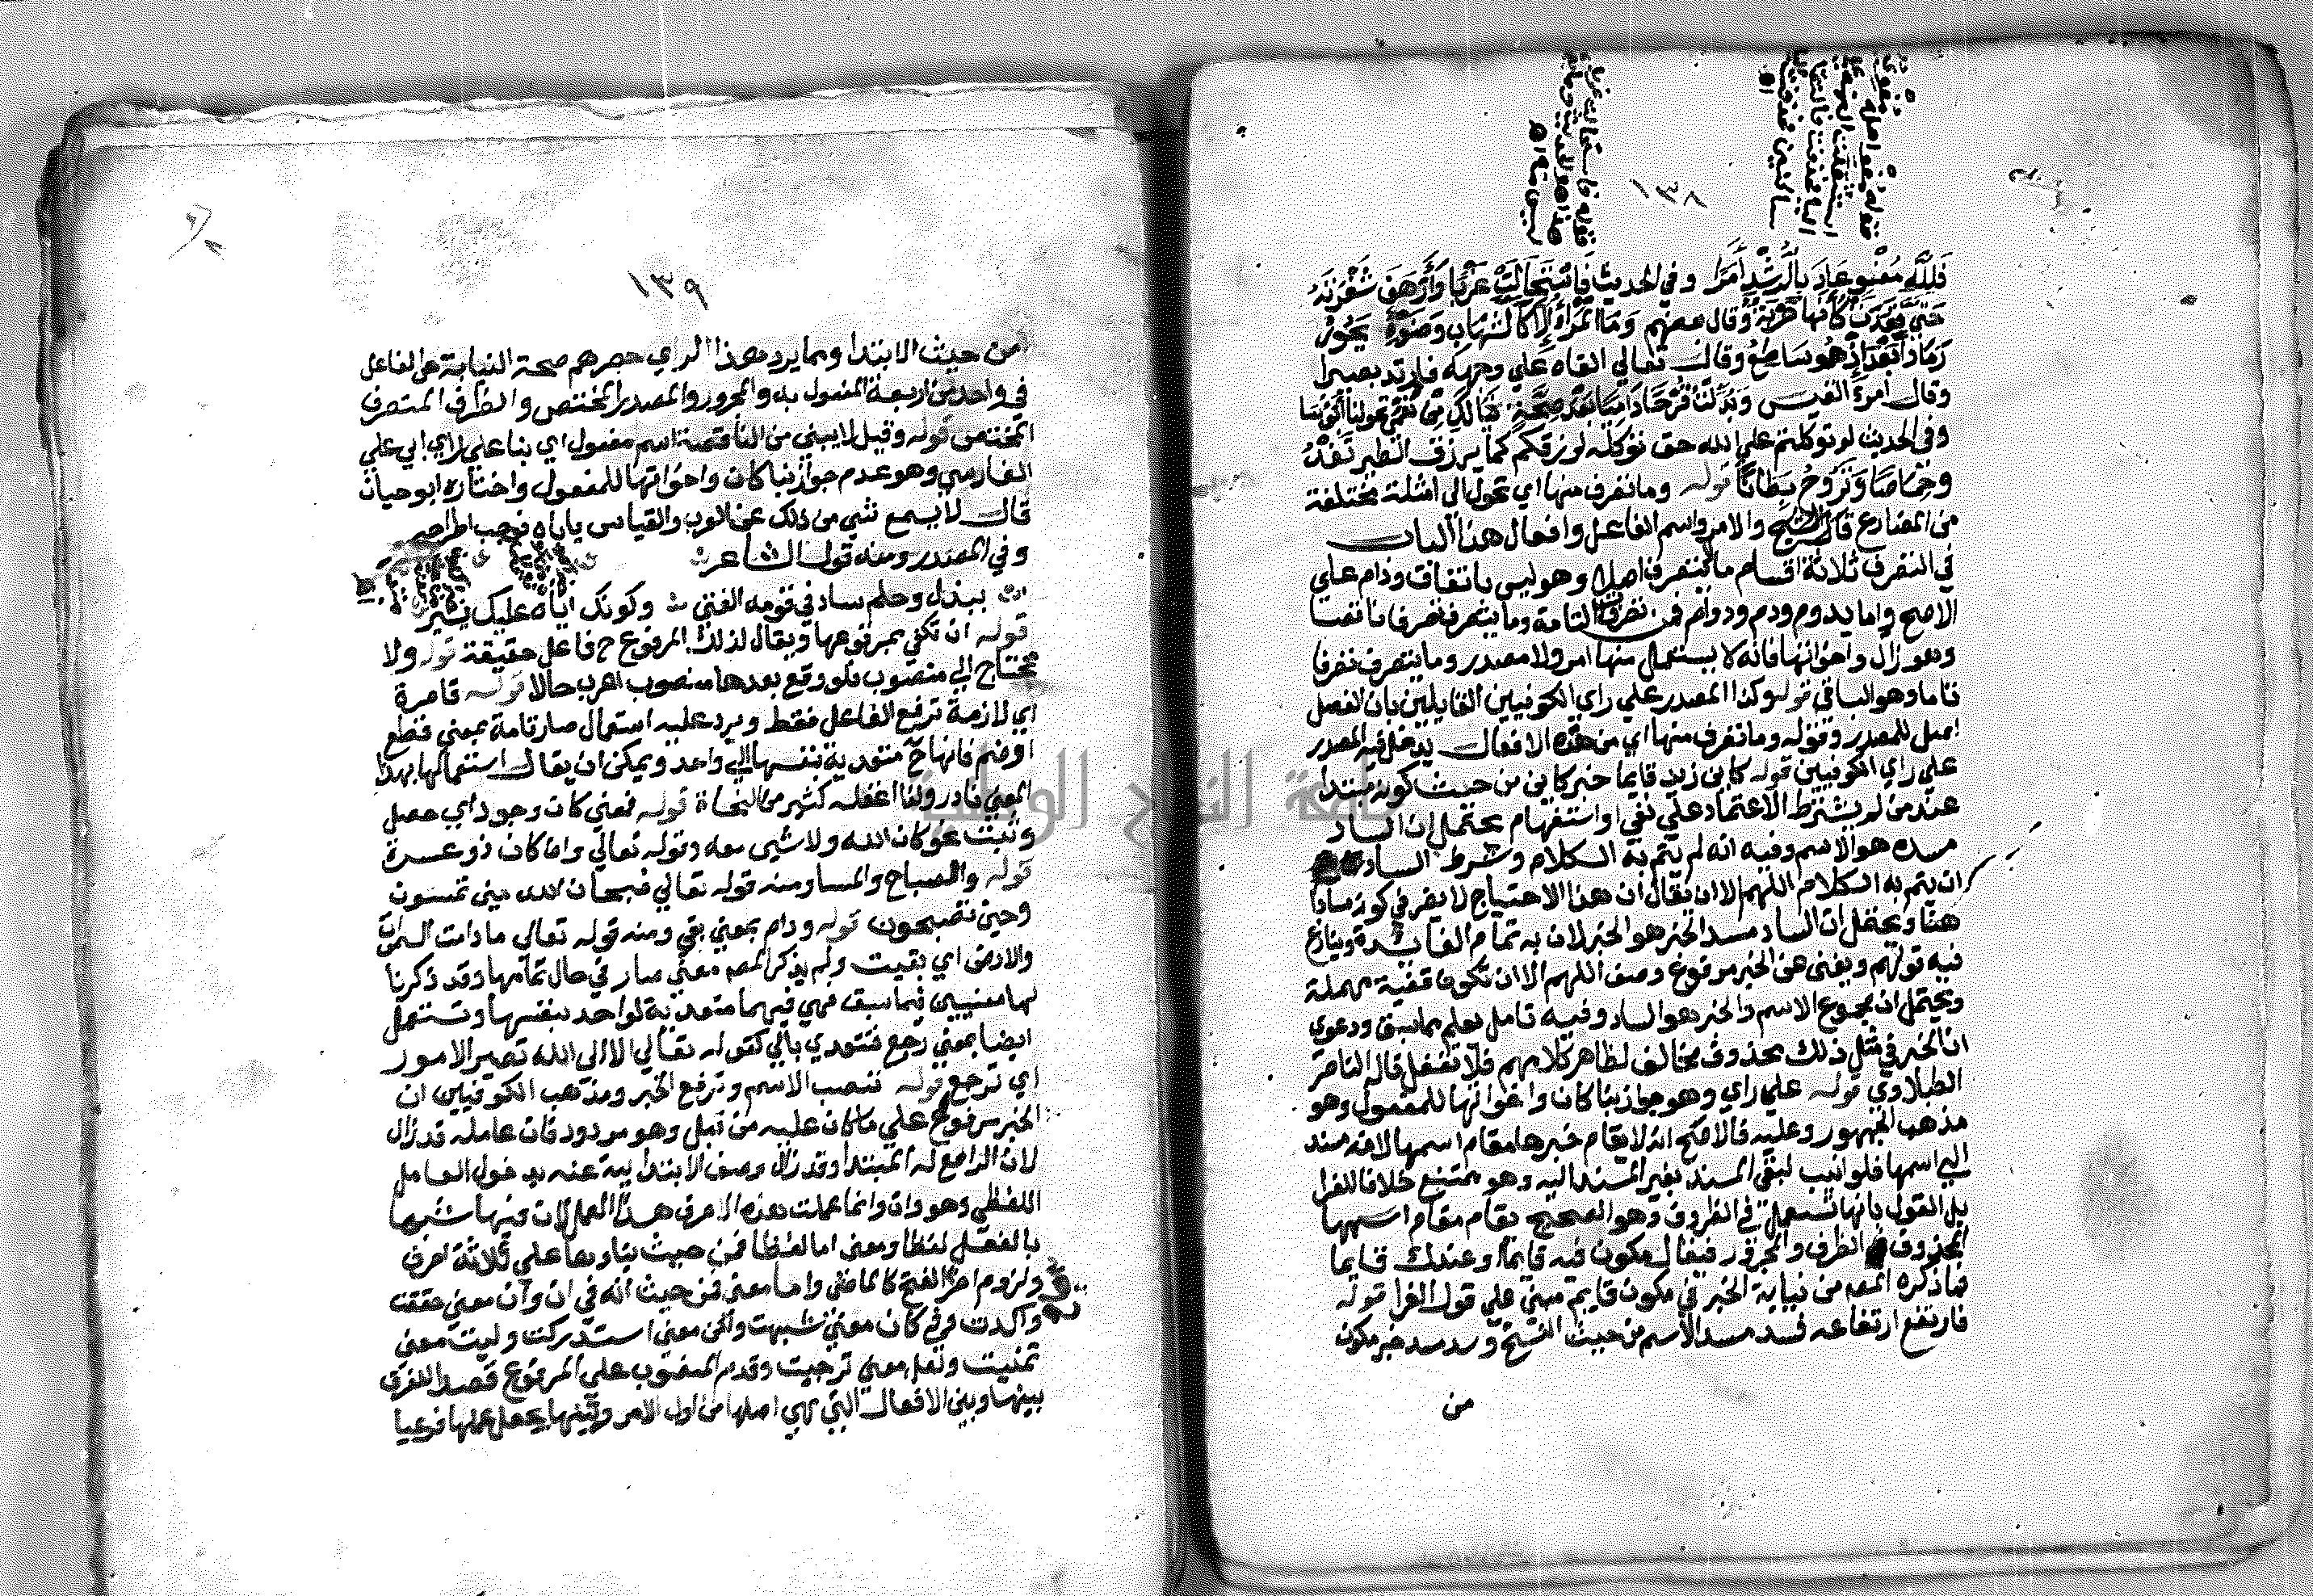 ١٣٨
فَلِلَّهِ مُغْنٍ عَادَ بِالرُّشْدِ أَمَرَّا وفي الحديث فَاسْتَحَالَتْ غَرْبًا
كَأَنَّهَا حَرْبَةٌ وقال بعضهم وَمَا المَرْءُ إِلَّا كَالشِّهَابِ وَضَوْءُهُ يَحُورُ
رَمَادًا بَعْدَ إِذْ هُوَ سَاطِعُ وقال تعالى القاه علي وجهه فارتد بصيرا
وقال امرء القيس وَبُدِّلْتُ قُرْحًا دَامِيًا بَعْدَ صِحَّةٍ
وفي الحديث لو توكلتم علي الله حق توكله لرزقكم كما يرزق الطير تَغْدُ
وخِمَاصًا وَتَرُوحُ بِطَانًا قوله وما تصرف منها اي تحول الي امثلة مختلفة
من المضارع قال الشيخ والامر واسم الفاعل وافعال هذا الباب
في التصرف ثلاثة اقسام ما لا يتصرف اصلا وهو ليس باتفاق ودام علي
الاصح واما يدوم ودم ودوام فمن تصرفات التامة وما يتصرف تصرفا ناقصا
وهو زال واخواتها فانه لا يستعمل منها امر ولا مصدر وما يتصرف تصرفا
تاما وهو الباقي قوله وكذا المصدر علي راي الكوفيين القايلين بان الفعل
اصل للمصدر وقوله وما تصرف منها اي من هذه الافعال يدخل فيه المصدر
علي راي الكوفيين قوله كاين زيد قايما خبر كاين من حيث كونه مبتدا
عند من لم يشترط الاعتماد علي نفي او استفهام يحتمل ان الساد
مسده هو الاسم وفيه انه لم يتم به الكلام وشرط الساد
ان يتم به الكلام اللهم الا ان يقال ان هذا الاحتياج لا يضر في كونه سادا
هنا ويحتمل ان الساد مسد الخبر هو الخبر لان به تمام الفايدة وينازع
فيه قولهم ويغني عن الخبر مرفوع وصف اللهم الا ان تكون قضية مهملة
ويحتمل ان مجموع الاسم والخبر هو الساد وفيه تامل يعلم مما سبق ودعوي
ان الخبر في مثل ذلك محذوف مخالف لظاهر كلامهم فلا تغفل قال الناصر
الطبلاوي قوله علي راي وهو جواز بنا كان واخواتها للمفعول وهو
مذهب الجمهور وعليه فالاصح انه لا يقام خبرها مقام اسمها لانه مسند
الي اسمها فلو انيب لبقي المسند بغير المسند اليه وهو ممتنع خلافا للفرا
بل القول بانها تستعمل في الظروف وهو الصحيح يقام مقام اسمها
المحذوف الظرف والمجرور فيقال مكون فيه قايما وعندك قايما
فما ذكره المص من نيابة الخبر في مكون قايم مبني علي قول الفرا قوله
فارتفع ارتفاعه فسد مسد الاسم من حيث النسخ وسد مسد خبر مكون
من
١٣٩
من حيث الابتدا ومما يرد هذا الراي حصرهم صحة النيابة عن الفاعل
في واحد من اربعة المفعول به والمجرور والمصدر المختص والظرف المتصرف
المختص قوله وقيل لا يبني من الناقصة اسم مفعول اي بنا علي راي ابي علي
الفارسي وهو عدم جواز بنا كان واخواتها للمفعول واختاره ابو حيان
قال لا يسمع شي من ذلك عن العرب والقياس ياباه فوجب اطراحه
وفي المصدر ومنه قول الشاعر
ببذل وحلم ساد في قومه الفتي وكونك اياه عليك يسير
قوله ان تكفي بمرفوعها ويقال لذلك المرفوع ح فاعل حقيقة قوله ولا
تحتاج الي منصوب فلو وقع بعدها منصوب اعرب حالا قوله قاصرة
اي لازمة ترفع الفاعل فقط ويرد عليه استعمال صار تامة بمعني قطع
او ضم فانها ح متعدية بنفسها الي واحد ويمكن ان يقال استعمالها بهذا
المعني نادر ولذا اغفله كثير من النحاة قوله فمعني كان وجود اي حصل
وثبت نحو كان الله ولا شي معه وقوله تعالي وان كان ذو عسرة
قوله والصباح والمسا ومنه قوله تعالي فسبحان الله حين تمسون
وحين تصبحون قوله ودام بمعني بقي ومنه قوله تعالي ما دامت السموات
والارض اي بقيت ولم يذكر المص معني صار في حال تمامها وقد ذكرنا
لها معنيين فيما سبق فهي فيهما متعدية لواحد بنفسها وتستعمل
ايضا بمعني رجع فتتعدي بالي كقوله تعالي الا الي الله تصير الامور
اي ترجع قوله تنصب الاسم وترفع الخبر ومذهب الكوفيين ان
الخبر مرفوع علي ما كان عليه من قبل وهو مردود فان عامله قد زال
لان الرافع له المبتدا وقد زال وصف الابتدايية عنه بدخول العامل
اللفظي وهو وان وانما عملت هذه الاحرف هذا العمل لان فيها شبها
بالفعل لفظا ومعني اما لفظا فمن حيث بناوها علي ثلاثة احرف
ولزوم اخرها الفتح كالماضي واما معني فمن حيث انه في ان وأن معني حققت
واكدت وفي كان معني شبهت ولكن معني استدركت وليت معني
تمنيت ولعل معني ترجيت وقدم المنصوب علي المرفوع قصدا للفرق
بينها وبين الافعال التي هي اصلها من اول الامر وتنبيها بجعل عملها فرعيا